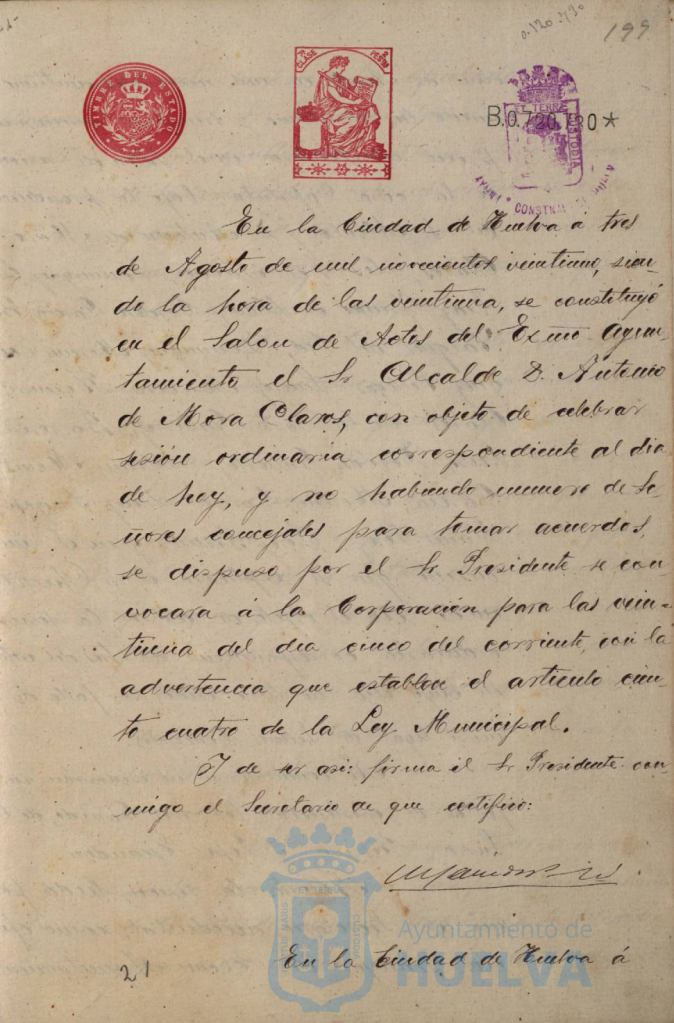 199
0.720.730
TIMBRE DEL ESTADO
7ª CLASE
B.0.720.730*
CUSTODIA
En la Ciudad de Huelva á tres
de Agosto de mil novecientos veintiuno, sien-
do la hora de las veintiuna, se constituyó
en el Salon de Actos del Exmo Ayun-
tamiento el Sr Alcalde D. Antonio
de Mora Claros, con objeto de celebrar
sesión ordinaria correspondiente al dia
de hoy, y no habiendo numero de Se-
ñores concejales para tomar acuerdos,
se dispuso por el Sr Presidente se con-
vocara á la Corporación para las vein-
tiuna del dia cinco del corriente, con la
advertencia que establece el articulo cien-
to cuatro de la Ley Municipal.
Y de ser asi: firma el Sr Presidente con-
migo el Secretario de que certifico:
Ayuntamiento de
HUELVA
21
En la Ciudad de Huelva á